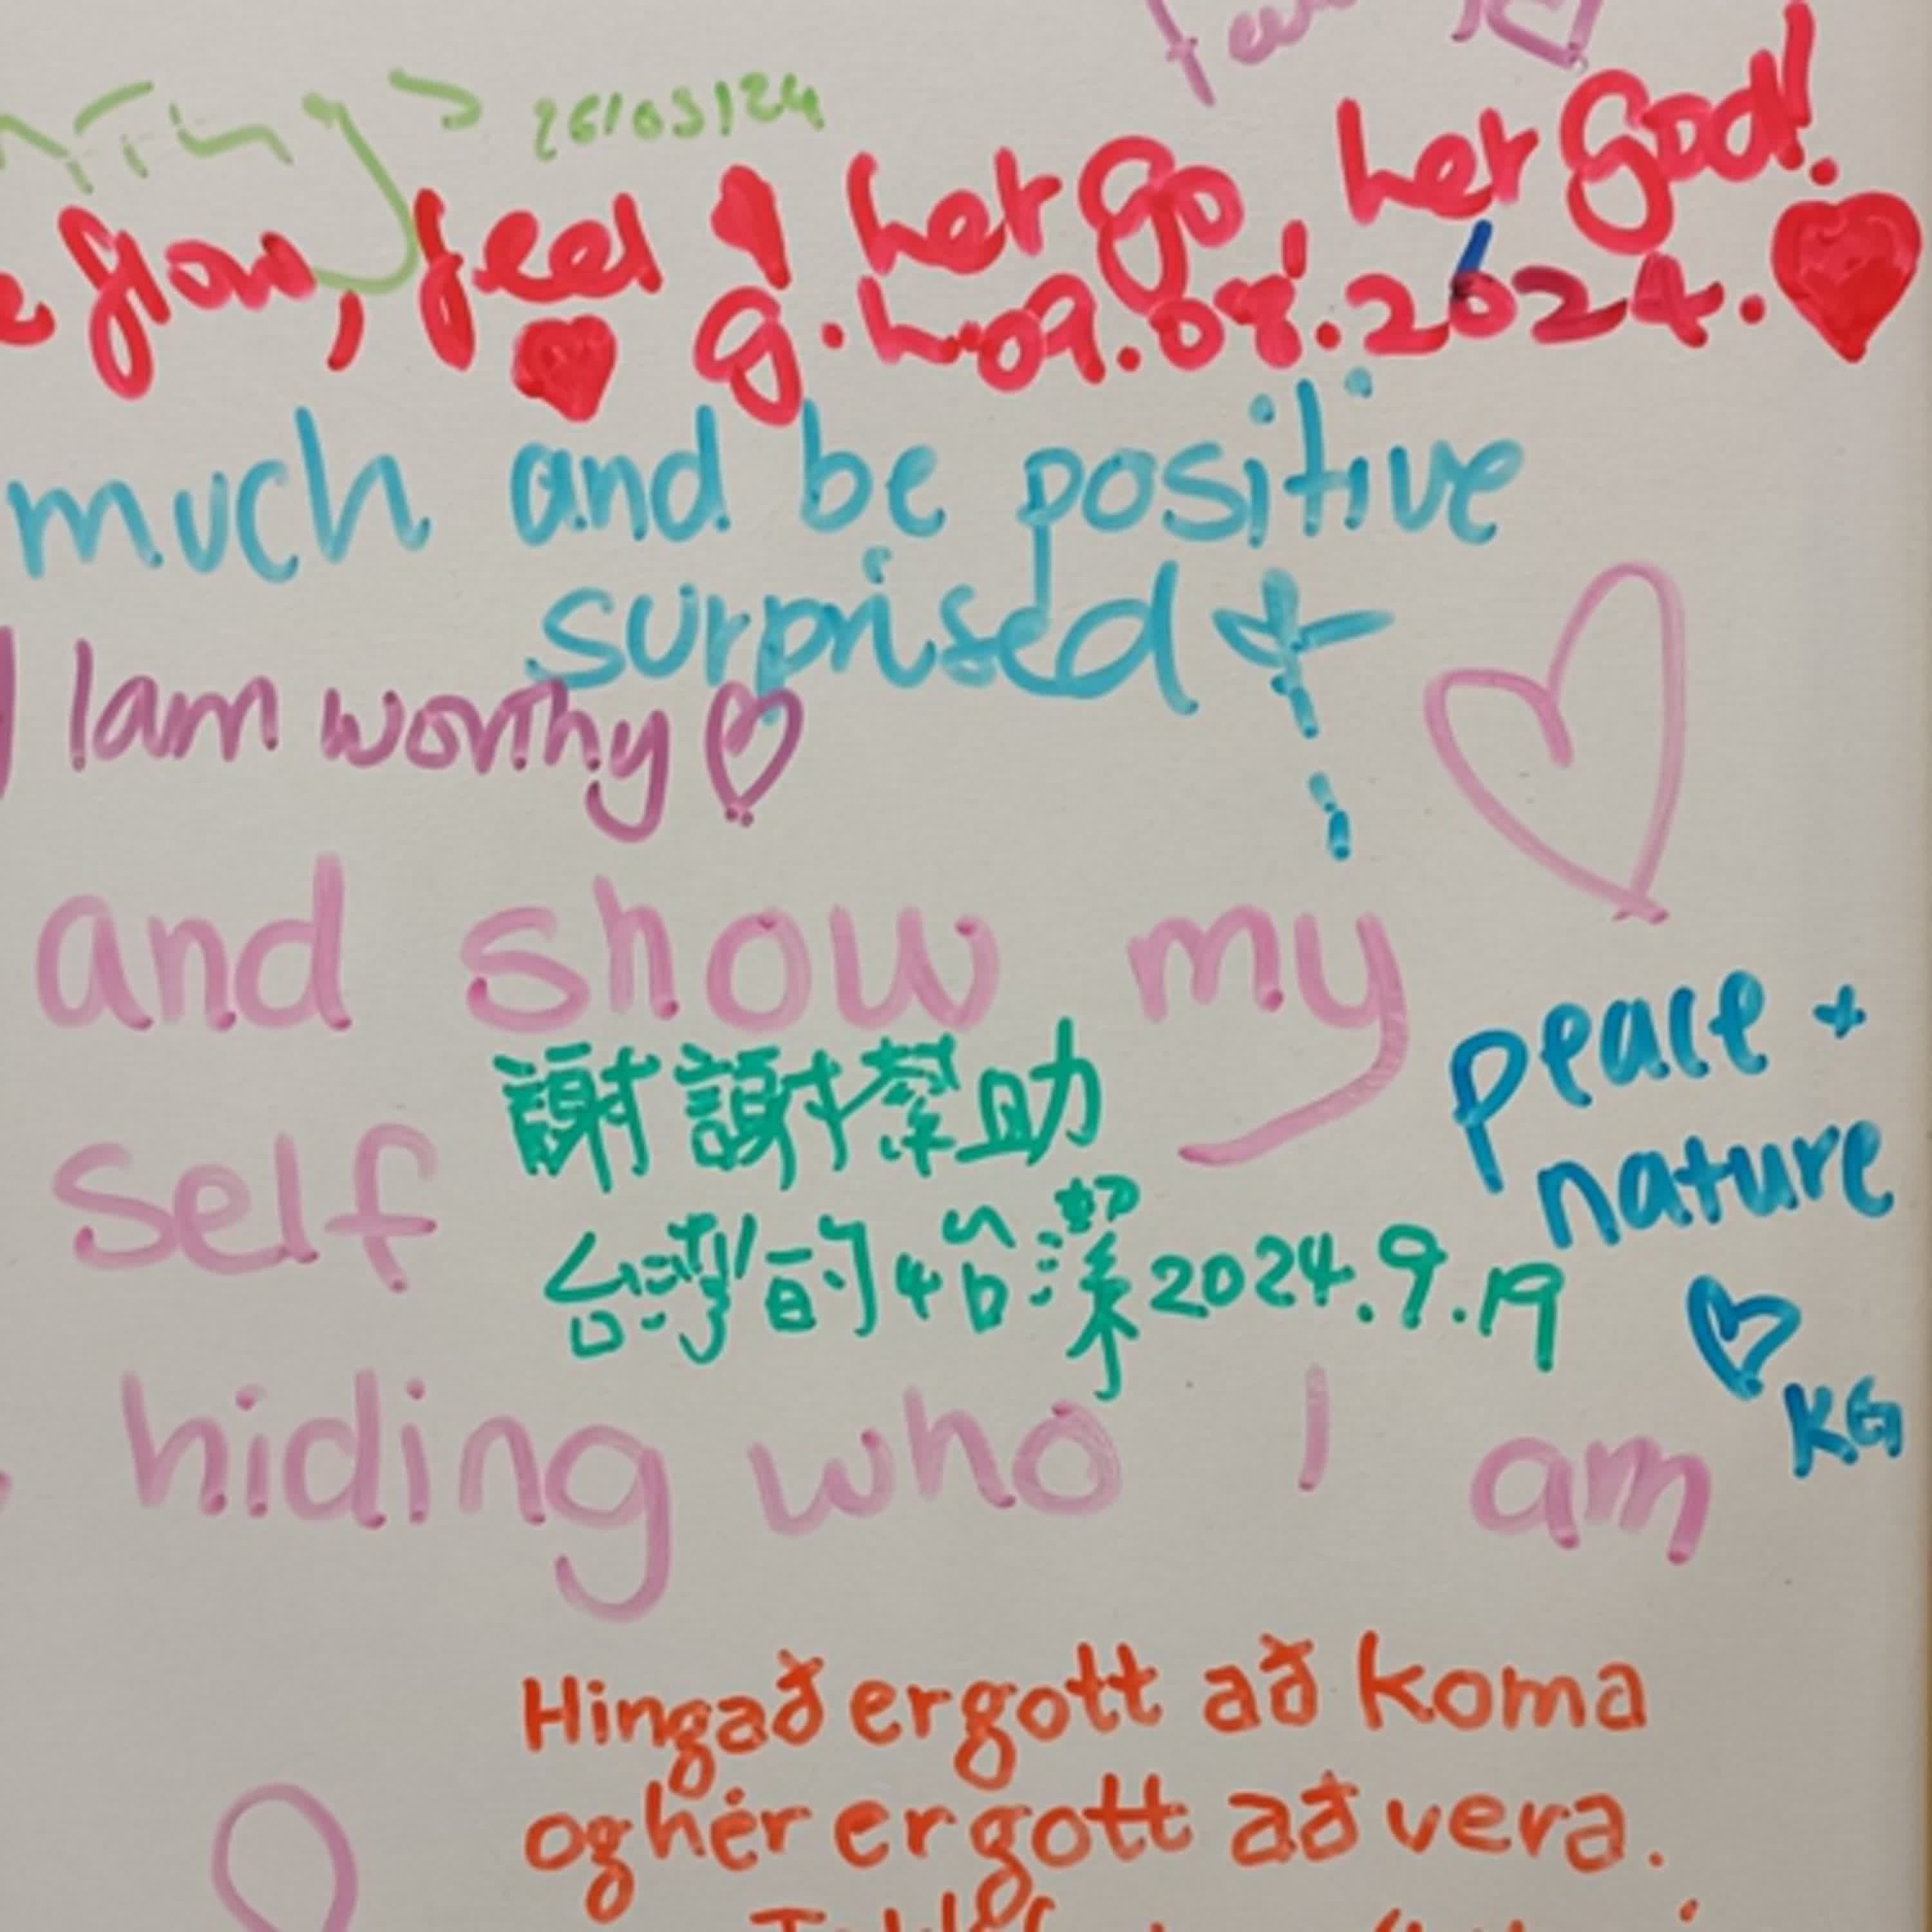 26/03/24
flow, feel & let go, let God!
g.h. 09.08.2024.
much and be positive
surprised
I am worthy
and show my
self
謝謝幫助
台灣的
2024.9.19
peace +
nature
KG
hiding who I am
Hingað er gott að koma
og hér er gott að vera.